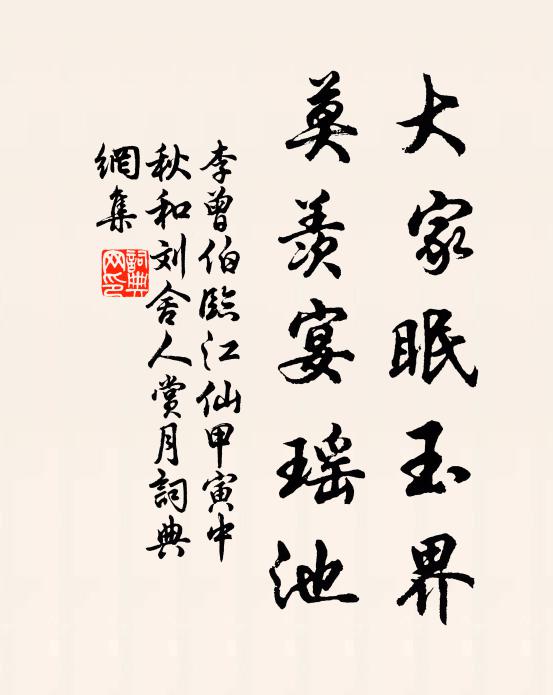 大家眠玉界
莫羨宴瑶池
李曾伯臨江仙甲寅中
秋和刘舍人賞月詞典
網集
詞典网印